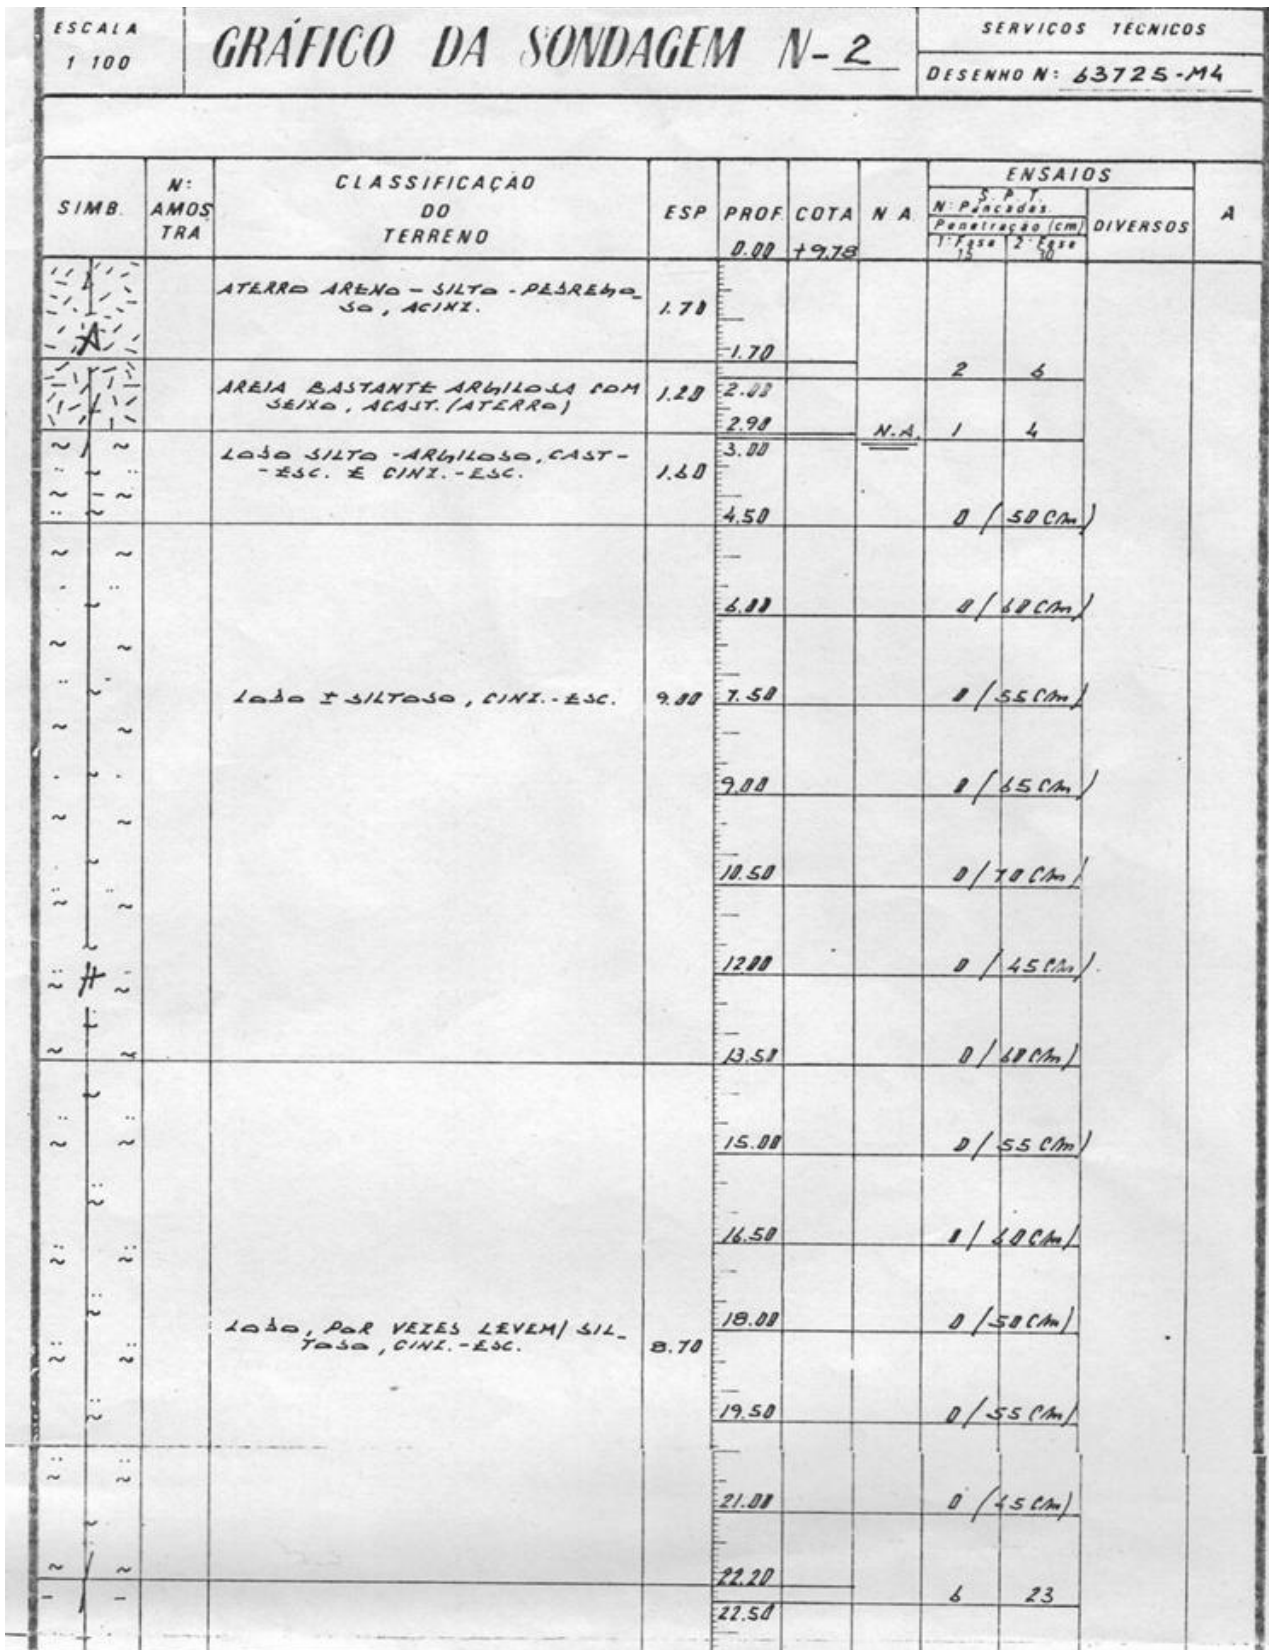 ESCALA
1 100
GRÁFICO DA SONDAGEM N-2
SERVIÇOS TECNICOS
DESENHO N: 63725-M4
SIMB.
N:
AMOS
TRA
CLASSIFICAÇÃO
DO
TERRENO
ESP
PROF
0.00
COTA
+9.78
N A
ENSAIOS
S. P. T.
N: Pancadas
Penetração (cm)
1ª Fase
15
2ª Fase
30
DIVERSOS
A
ATERRO ARENO-SILTO-PEDREGO-
SO, ACINZ.
1.70
1.70
A
2 6
AREIA BASTANTE ARGILOSA COM
SEIXO, ACAST. (ATERRO)
1.20
2.00
2.90
N.A.
1 4
3.00
LODO SILTO-ARGILOSO, CAST-
-ESC. E CINZ.-ESC.
1.60
4.50
0 / 50 CM)
6.00
0 / 60 CM)
LODO ± SILTOSO, CINZ.-ESC.
9.00
7.50
0 / 55 CM)
9.00
0 / 65 CM)
10.50
0 / 70 CM)
12.00
0 / 45 CM)
H
13.50
0 / 60 CM)
15.00
0 / 55 CM)
16.50
0 / 60 CM)
18.00
0 / 50 CM)
LODO, POR VEZES LEVEM/ SIL-
TOSO, CINZ.-ESC.
8.70
19.50
0 / 55 CM)
21.00
0 / 45 CM)
22.20
6 23
22.50